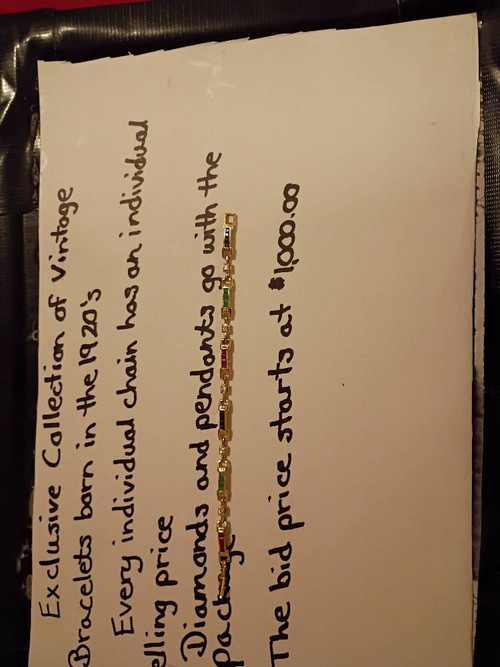 Exclusive Collection of Vintage
Bracelets born in the 1920's
Every individual chain has an individual
elling price
Diamonds and pendants go with the
package
The bid price starts at $1,000.00